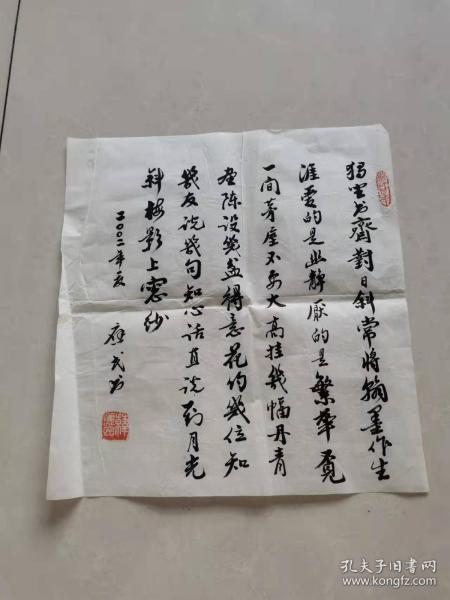 独坐书斋對日斜常将翰墨作生
涯爱的是幽静厭的是繁华覓
一间茅屋不要大高挂幾幅丹青
画陈设幾盆得意花约幾位知
幾友说幾句知心话直说到月光
斜梅影上窓纱
二00二年夏
應武书
孔夫子旧书网
www.kongfz.com